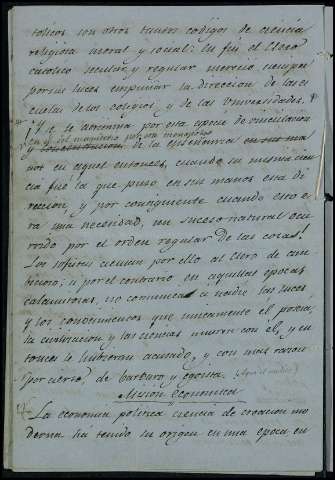 tolicos son otros tantos codigos de ciencia
religiosa moral y social: En fin el Clero
catolico secular y regular mereció siempre
por sus luces empuñar la direccion de las es
cuelas de los colegios y de las Universidades.
Y se le acrimina por esa epoca de vinculacion
en el del magisterio por ese monopolio
y de la enseñanza en sus ma
nos en aquel entonces, cuando su misma cien
cia fué la que puso en sus manos esta di
reccion, y por consiguiente cuando esto e
ra una necesidad, un suceso natural ocu
rrido por el orden regular de las cosas!
Los sofistas acusan por ello al Clero de am
bicioso; si por el contrario en aquellas epocas
calamitosas, no comunica á nadie las luces
y los conocimientos que unicamente él poseia,
la civilizacion y las ciencias mueren con él, y en
tonces le hubieran acusado, y con mas razon
por cierto, de barbaro y egoista. (Aqui el medio)
Mision economica
La economia politica ciencia de creacion mo
derna há tenido su origen en una epoca en